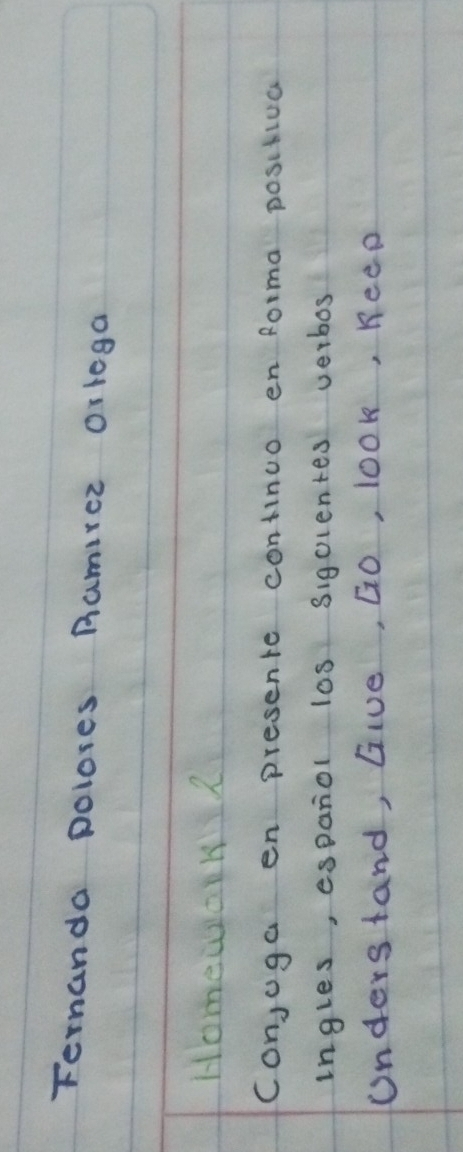 Fernanda Dolores Ramirez Ortega
Homework 2
Conjuga en presente continuo en forma positiva
ingles, español los siguientes verbos
Understand, Give, Go, look, Keep